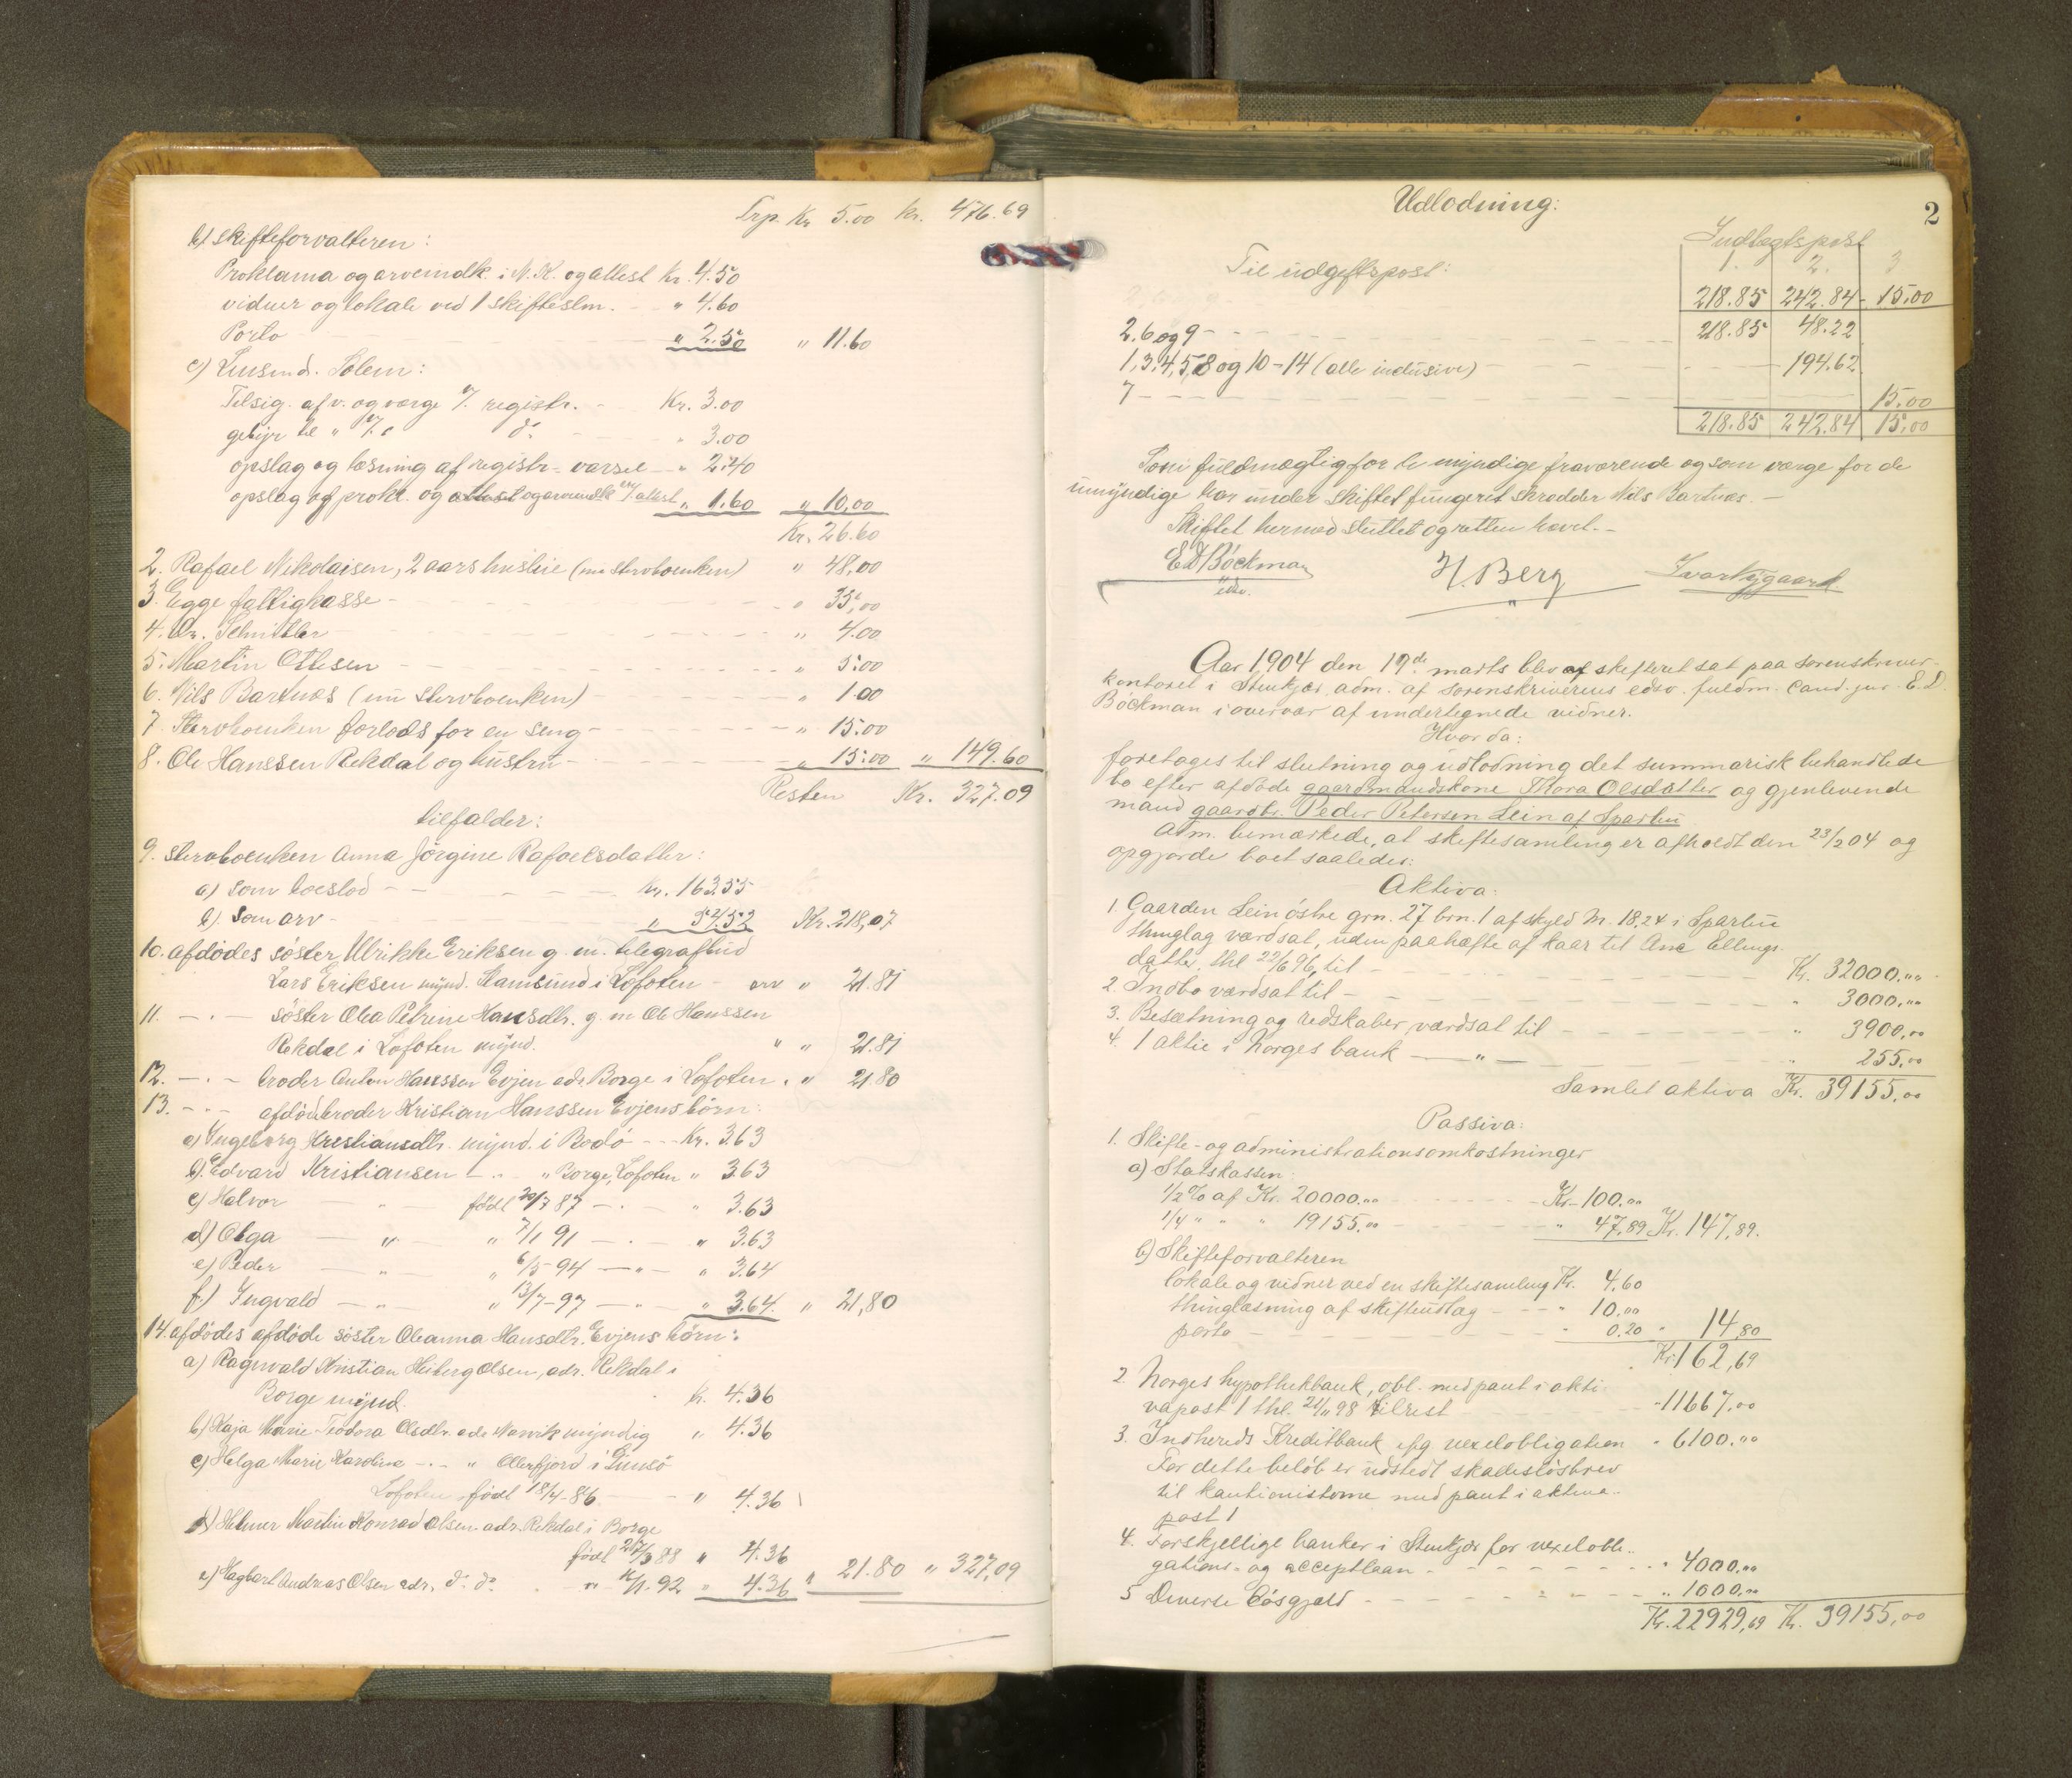 Trp. Kr 5.00 kr. 476.69
b) skifteforvalteren:
Proklama og arveindk. i N.K. og attest Kr. 4.50
vidner og lokale ved 1 skifteslm. - - " 4.60
Porto - - " 2.50 " 11.60
c) Lensmd. Solem:
Tilsig. af v. og værge v/. registr. - Kr. 3.00
gebyr til " v/. " do - - " 3.00
opslag og læsning af registr-varsel - " 2.40
opslag af prokl. og attest og arveindk m/. attest " 1.60 " 10.00
Kr. 26.60
2. Rafael Nikolaisen, 2 aars husleie (mu stervboenken) " 48,00
3. Egge fattigkasse - - " 35,00
4. Dr. Schnitler - - " 4.00
5. Martin Ottesen - - " 5.00
6. Nils Bartnæs (mu stervboenken) - - " 1.00
7. Stervboenken forlods for en seng - - " 15.00
8. Ole Hanssen Rekdal og hustru - - " 15.00 " 149.60
Resten Kr. 327.09
tilfalder:
9. stervboenken Anna Jörgine Rafaelsdatter:
a) som boeslod - - Kr. 163.55
b). Som arv - " 54.52 Kr. 218,07
10. afdödes söster Ulrikke Eriksen g. m. telegrafbud
Lars Eriksen mynd. Stamsund i Lofoten - arv " 21.81
11. - " - söster Olea Petrine Hansdtr. g. m Ole Hanssen
Rekdal i Lofoten mynd. " " 21.81
12. - " - broder Anton Hanssen Evjen adr Borge i Lofoten. " 21.80
13. - " - afdöd broder Kristian Hanssen Evjens börn:
a) Ingeborg Kristiansdtr. mynd. i Bodö - - Kr. 3.63
b). Edvard Kristiansen - " - " Borge, Lofoten " 3.63
c) Halvor - " - född 20/7 87 - " - " 3.63
d) Olga - " - " 7/1 91 - " - " 3.63
e) Peder - " - " 6/5-94 - " - " 3.64
f.) Ingvald - " - " 13/7-97 - " - " 3.64. " 21,80
14. afdödes afdöde söster Oleanna Hansdtr. Evjens börn:
a) Ragnvald Kristian Heiberg Olsen, adr. Rekdal i
Borge mynd. kr. 4.36
b) Kaja Marie Teodora Olsdtr. adr Narvik myndig " 4.36
c) Helga Marie Karoline - " - " Ollerfjord i Gimsö
Lofoten född 18/4-86 - " 4.36
d) Helmer Martin Konrad Olsen adr. Rekdal i Borge
född 27/3 88 " 4.36
e) Hagbart Andreas Olsen adr. do do - " 4/1. 92 " 4.36 " 21.80 " 327,09
2
Udlodning:
Indtægtspost
Til udgiftspost: 1. 2. 3
218.85 242.84 - 15.00
2, 6 og 9 - - 218.85 48.22
1, 3, 4, 5, 8 og 10-14 (alle inclusive) - - 194.62
7 - - 15.00
218.85 242.84 15.00
Som fuldmægtig for de myndige fraværende og som værge for de
umyndige har under skiftet fungeret skrædder Nils Bartnæs. -
Skiftet hermed sluttet og retten hævet. -
E D Böckman H. Berg Ivar Nygaard
edsv.
Aar 1904 den 19de marts blev af skifteret sat paa sorenskriver-
kontoret i Stenkjær, adm. af sorenskriverens edsv. fuldm. cand. jur. E. D
Böckman i overvær af undertegnede vidner.
Hvor da:
foretages til slutning og udlodning det summarisk behandlede
bo efter afdöde gaardmandskone Thora Olsdatter og gjenlevende
mand gaardbr. Peder Petersen Lein af Sparbu
Adm. bemærkede, at skiftesamling er afholdt den 23/2 04 og
opgjorde boet saaledes:
Aktiva:
1. Gaarden Lein östre grn. 27 brn. 1 af skyld M. 18.24 i Sparbu
thinglag værdsat, uden paahæfte af kaar til Ane Ellings-
datter, thl 22/6 96, til - - Kr. 32000.00
2. Indbo værdsat til - - " 3000.00
3. Besætning og redskaber værdsat til - - " 3900.00
4. 1 aktie i Norges bank - " - - " 255.00
Samlet aktiva Kr. 39155.00
Passiva:
1. Skifte- og administrationsomkostninger
a) Statskassen:
1/2 % af Kr. 20000.00 - - Kr. 100.00
1/4 " " " 19155.00 - - " 47,89 Kr. 147,89.
b) Skifteforvalteren
lokale og vidner ved en skiftesamling Kr. 4.60
thinglæsning af skifteudlæg - - " 10.00
porto - - " 0.20 " 14,80
Kr. 162,69
2. Norges hypothekbank, obl. med pant i akti-
vapost 1 thl. 21/11 98 tilrest - 11667.00
3. Indhereds Kreditbank ifg vexelobligation " 6100.00
For dette belöb er udstedt skadeslösbrev
til kautionisterne med pant i aktiva-
post 1
4. Forskjellige banker i Stenkjær for vexelobli-
gations- og acceptlaan - - " 4000.00
5 Diverse lösgjæld - - " 1000.00
Kr. 22929,69 Kr. 39155,00